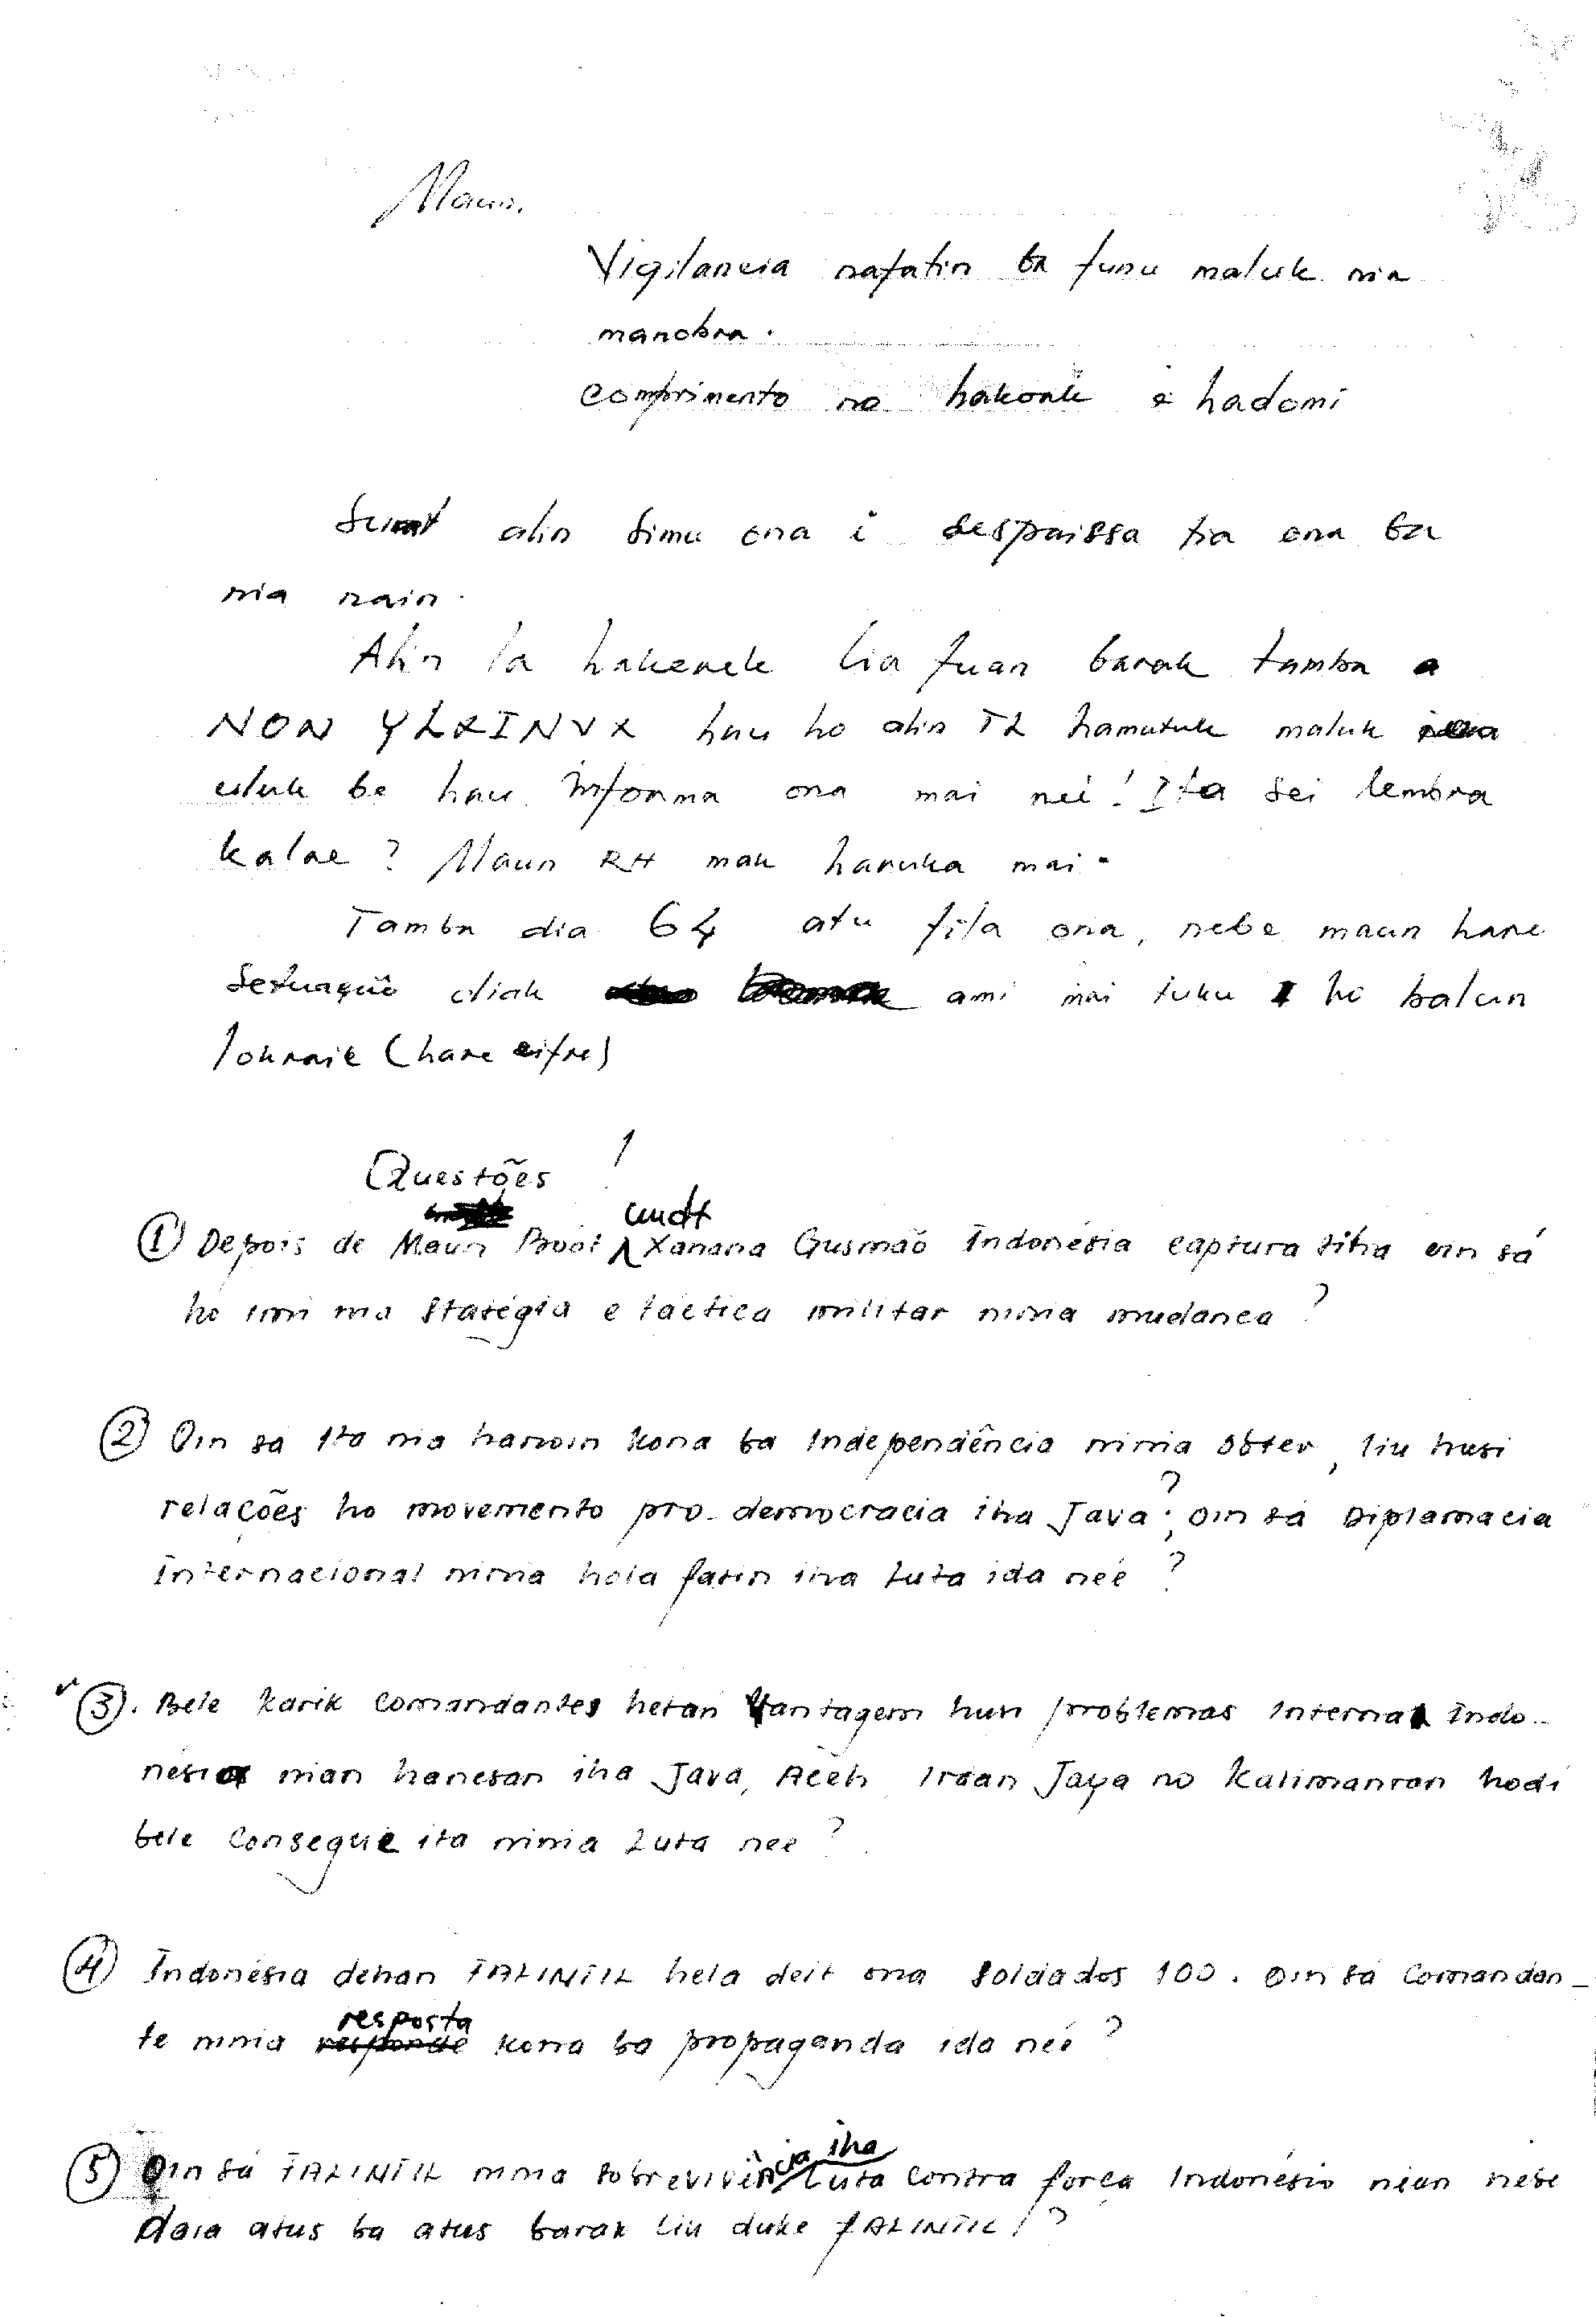 Maun,
Vigilancia nafatin ba funu maluk nia
manobra.
Comprimento no hakoak e hadomi
Surat alin simu ona i despaissa tia ona ba
nia nain.
Alin la hakerek lia fuan barak tamba
NON YLXINVX hau ho alin TL hamutuk maluk
uluk be hau informa ona mai neé! Ita sei lembra
kalae? Maun RH mak haruka mai.
Tamba dia 64 atu fila ona, nebe maun hare
Setuação diak ami mai tuku ho balun
loknaik (hare cifre)
Questões !
① Depois de Maun Boot cmdt Xanana Gusmão Indonésia captura tiha oin sá
ho imi nia Stratégia e táctica militar ninia mudanca?
② Oin sa Ita nia hanoin kona ba Independência ninia obter, liu husi
relações ho movemento pro-democracia iha Java?; Oin sá Diplamacia
Internacional ninia hola fatin iha Luta ida neé?
③. Bele karik Comandantes hetan Vantagem husi problemas Interna Indo-
nésia nian hanesan iha Java, Aceh, Irian Jaya no Kalimantan hodi
bele Consegue ita ninia Luta neé?
④ Indonésia dehan FALINTIL hela deit ona Soldados 100. Oin sá Comandan-
te ninia resposta kona ba propaganda ida neé?
⑤ Oin sá FALINTIL ninia sobrevivência iha Luta Contra forca Indonésio nian nebe
atus ba atus barak liu duke FALINTIL!?